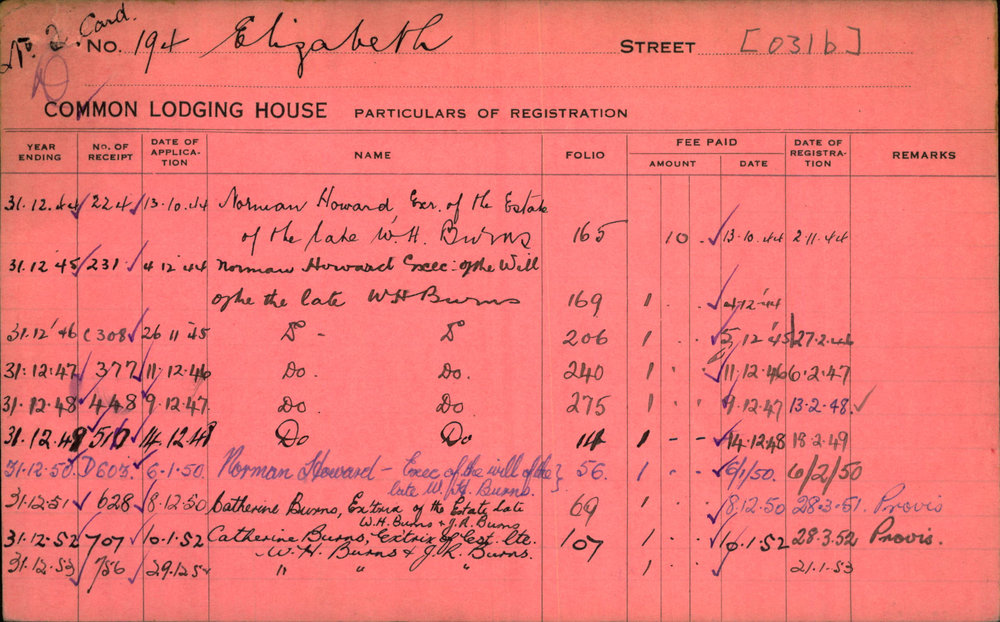 No. 2. Card.
No. 194 Elizabeth STREET [031b]
COMMON LODGING HOUSE PARTICULARS OF REGISTRATION
YEAR ENDING NO. OF RECEIPT DATE OF APPLICATION NAME FOLIO FEE PAID AMOUNT DATE DATE OF REGISTRATION REMARKS
31.12.44 224 13.10.44 Norman Howard Exr. of the Estate
of the late W.H. Burns 165 10 . 13.10.44 2.11.44
31.12.45 231 4.12.44 Norman Howard Exec: of the Will
of the the late W H Burns 169 1 . . 4.12.44
31.12.46 C308 26.11.45 Do Do 206 1 . . 5.12.45 27.2.46
31.12.47 377 11.12.46 Do. Do. 240 1 . . 11.12.46 6.2.47
31.12.48 448 9.12.47 Do. Do. 275 1 . . 9.12.47 13.2.48.
31.12.49 14.12.48 Do Do 14 1 - - 14.12.48 18.2.49
31.12.50. D603. 6.1.50. Norman Howard - Exec of the will of the } 56. 1 . . 6/1/50. 6/2/50
late W. Burns.
31.12.51 628 8.12.50 Catherine Burns, of the Estate Late 69 1 . . 8.12.50 28.3.51. Provis
W.H. Burns & J.R. Burns
31.12.52 707 10.1.52 Catherine Burns, Extrix of Est. lte. 107 1 . . 10.1.52 28.3.52 Provis.
W.H. Burns & J.R. Burns.
31.12.53 756 29.12.52 " " " 1 . . 21.1.53